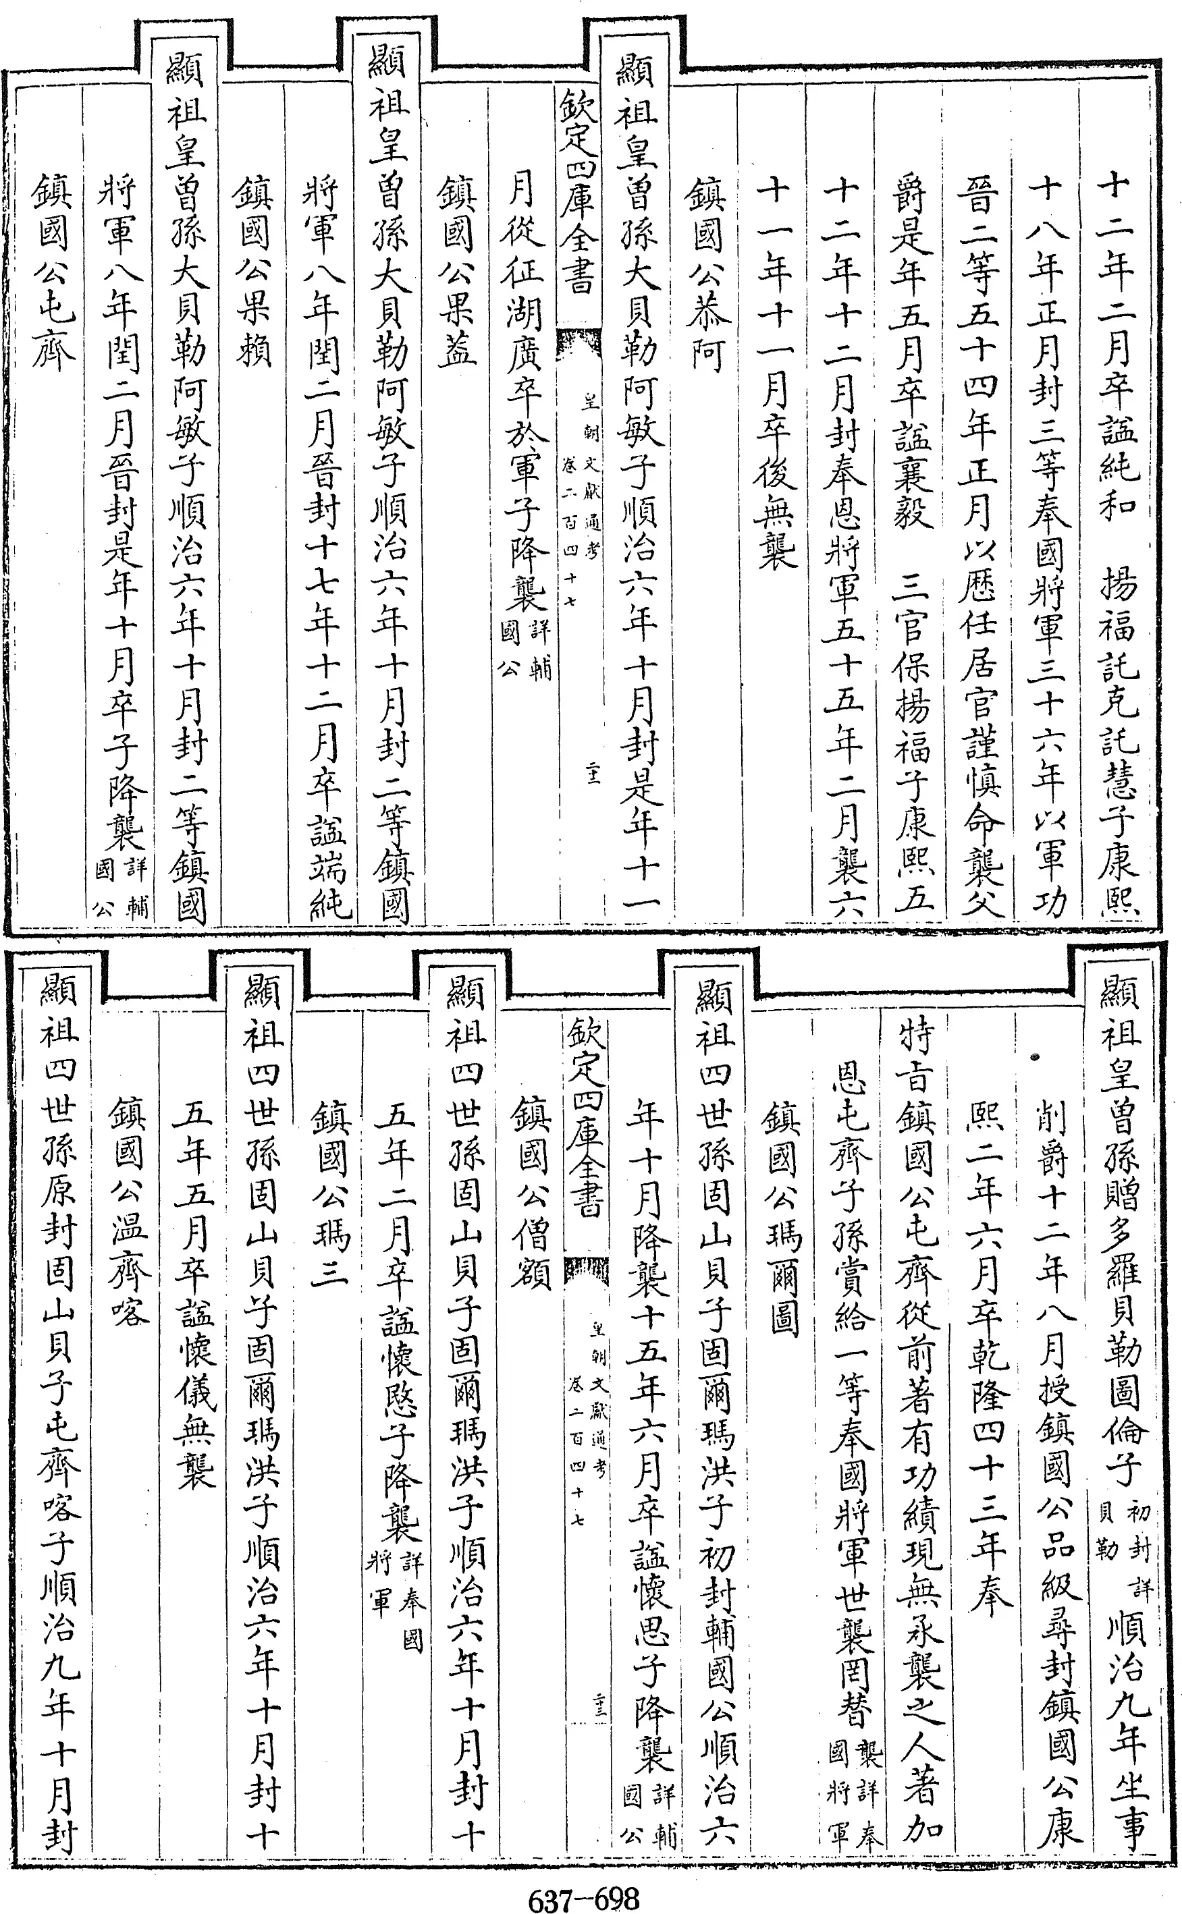 十二年二月卒諡純和　揚福託克託慧子康熙
十八年正月封三等奉國將軍三十六年以軍功
晉二等五十四年正月以歷任居官謹慎命襲父
爵是年五月卒諡襄毅　三官保揚福子康熙五
十二年十二月封奉恩將軍五十五年二月襲六
十一年十一月卒後無襲
鎮國公恭阿
顯祖皇曾孫大貝勒阿敏子順治六年十月封是年十一
欽定四庫全書　皇朝文獻通考卷二百四十七　二十三
月從征湖廣卒於軍子降襲詳輔國公
鎮國公果葢
顯祖皇曾孫大貝勒阿敏子順治六年十月封二等鎮國
將軍八年閏二月晉封十七年十二月卒諡端純
鎮國公果賴
顯祖皇曾孫大貝勒阿敏子順治六年十月封二等鎮國
將軍八年閏二月晉封是年十月卒子降襲詳輔國公
鎮國公屯齊
顯祖皇曾孫贈多羅貝勒圖倫子初封詳貝勒順治九年坐事
削爵十二年八月授鎮國公品級尋封鎮國公康
熙二年六月卒乾隆四十三年奉
特旨鎮國公屯齊從前著有功績現無承襲之人著加
恩屯齊子孫賞給一等奉國將軍世襲罔替襲詳奉國將軍
鎮國公瑪爾圖
顯祖四世孫固山貝子固爾瑪洪子初封輔國公順治六
年十月降襲十五年六月卒諡懷思子降襲詳輔國公
欽定四庫全書　皇朝文獻通考卷二百四十七　二十三
鎮國公僧額
顯祖四世孫固山貝子固爾瑪洪子順治六年十月封十
五年二月卒諡懷愍子降襲詳奉國將軍
鎮國公瑪三
顯祖四世孫固山貝子固爾瑪洪子順治六年十月封十
五年五月卒諡懷儀無襲
鎮國公溫齊喀
顯祖四世孫原封固山貝子屯齊喀子順治九年十月封
637-698